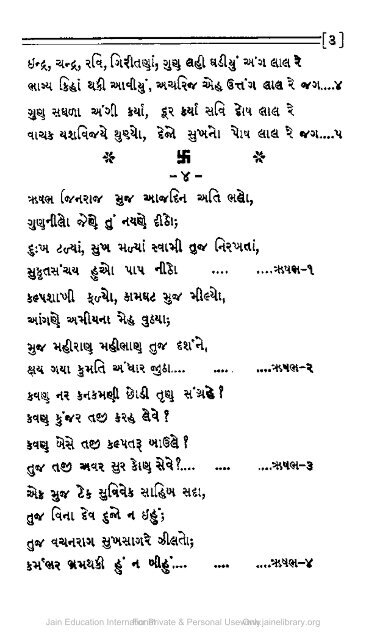 [૩]
ઇન્દ્ર, ચન્દ્ર, રવિ, ગિરીતણાં, ગુણ લહી ઘડીયું અંગ લાલ રે
ભાગ્ય કિહાં થકી આવીયું, અચરિજ એહ ઉત્તંગ લાલ રે જગ....૪
ગુણ સઘળા અંગી કર્યાં, દૂર કર્યાં સવિ દોષ લાલ રે
વાચક યશવિજયે થુણ્યો, દેજો સુખનો પોષ લાલ રે જગ....૫
❇ 卐 ❇
-૪-
ઋષભ જિનરાજ મુજ આજદિન અતિ ભલો,
ગુણનીલો જેણે તું નયણે દીઠો;
દુઃખ ટળ્યાં, સુખ મળ્યાં સ્વામી તુજ નિરખતાં,
સુકૃતસંચય હુઓ પાપ નીઠો .... ....ઋષભ-૧
કલ્પશાખી ફળ્યો, કામઘટ મુજ મીલ્યો,
આંગણે અમીયના મેહ વુઠયા;
મુજ મહીરાણ મહીભાણ તુજ દર્શને,
ક્ષય ગયા કુમતિ અંધાર જુઠા.... .... ....ઋષભ-૨
કવણ નર કનકમણી છોડી તૃણ સંગ્રહે ?
કવણ કુંજર તજી કરહ લેવે ?
કવણ બેસે તજી કલ્પતરૂ બાઉલે ?
તુજ તજી અવર સુર કોણ સેવે ?.... .... ....ઋષભ-૩
એક મુજ ટેક સુવિવેક સાહિબ સદા,
તુજ વિના દેવ દુજો ન ઇહું;
તુજ વચનરાગ સુખસાગરે ઝીલતો;
કર્મભર ભ્રમથકી હું ન બીહું.... .... ....ઋષભ-૪
Jain Education International For Private & Personal Use Only www.jainelibrary.org